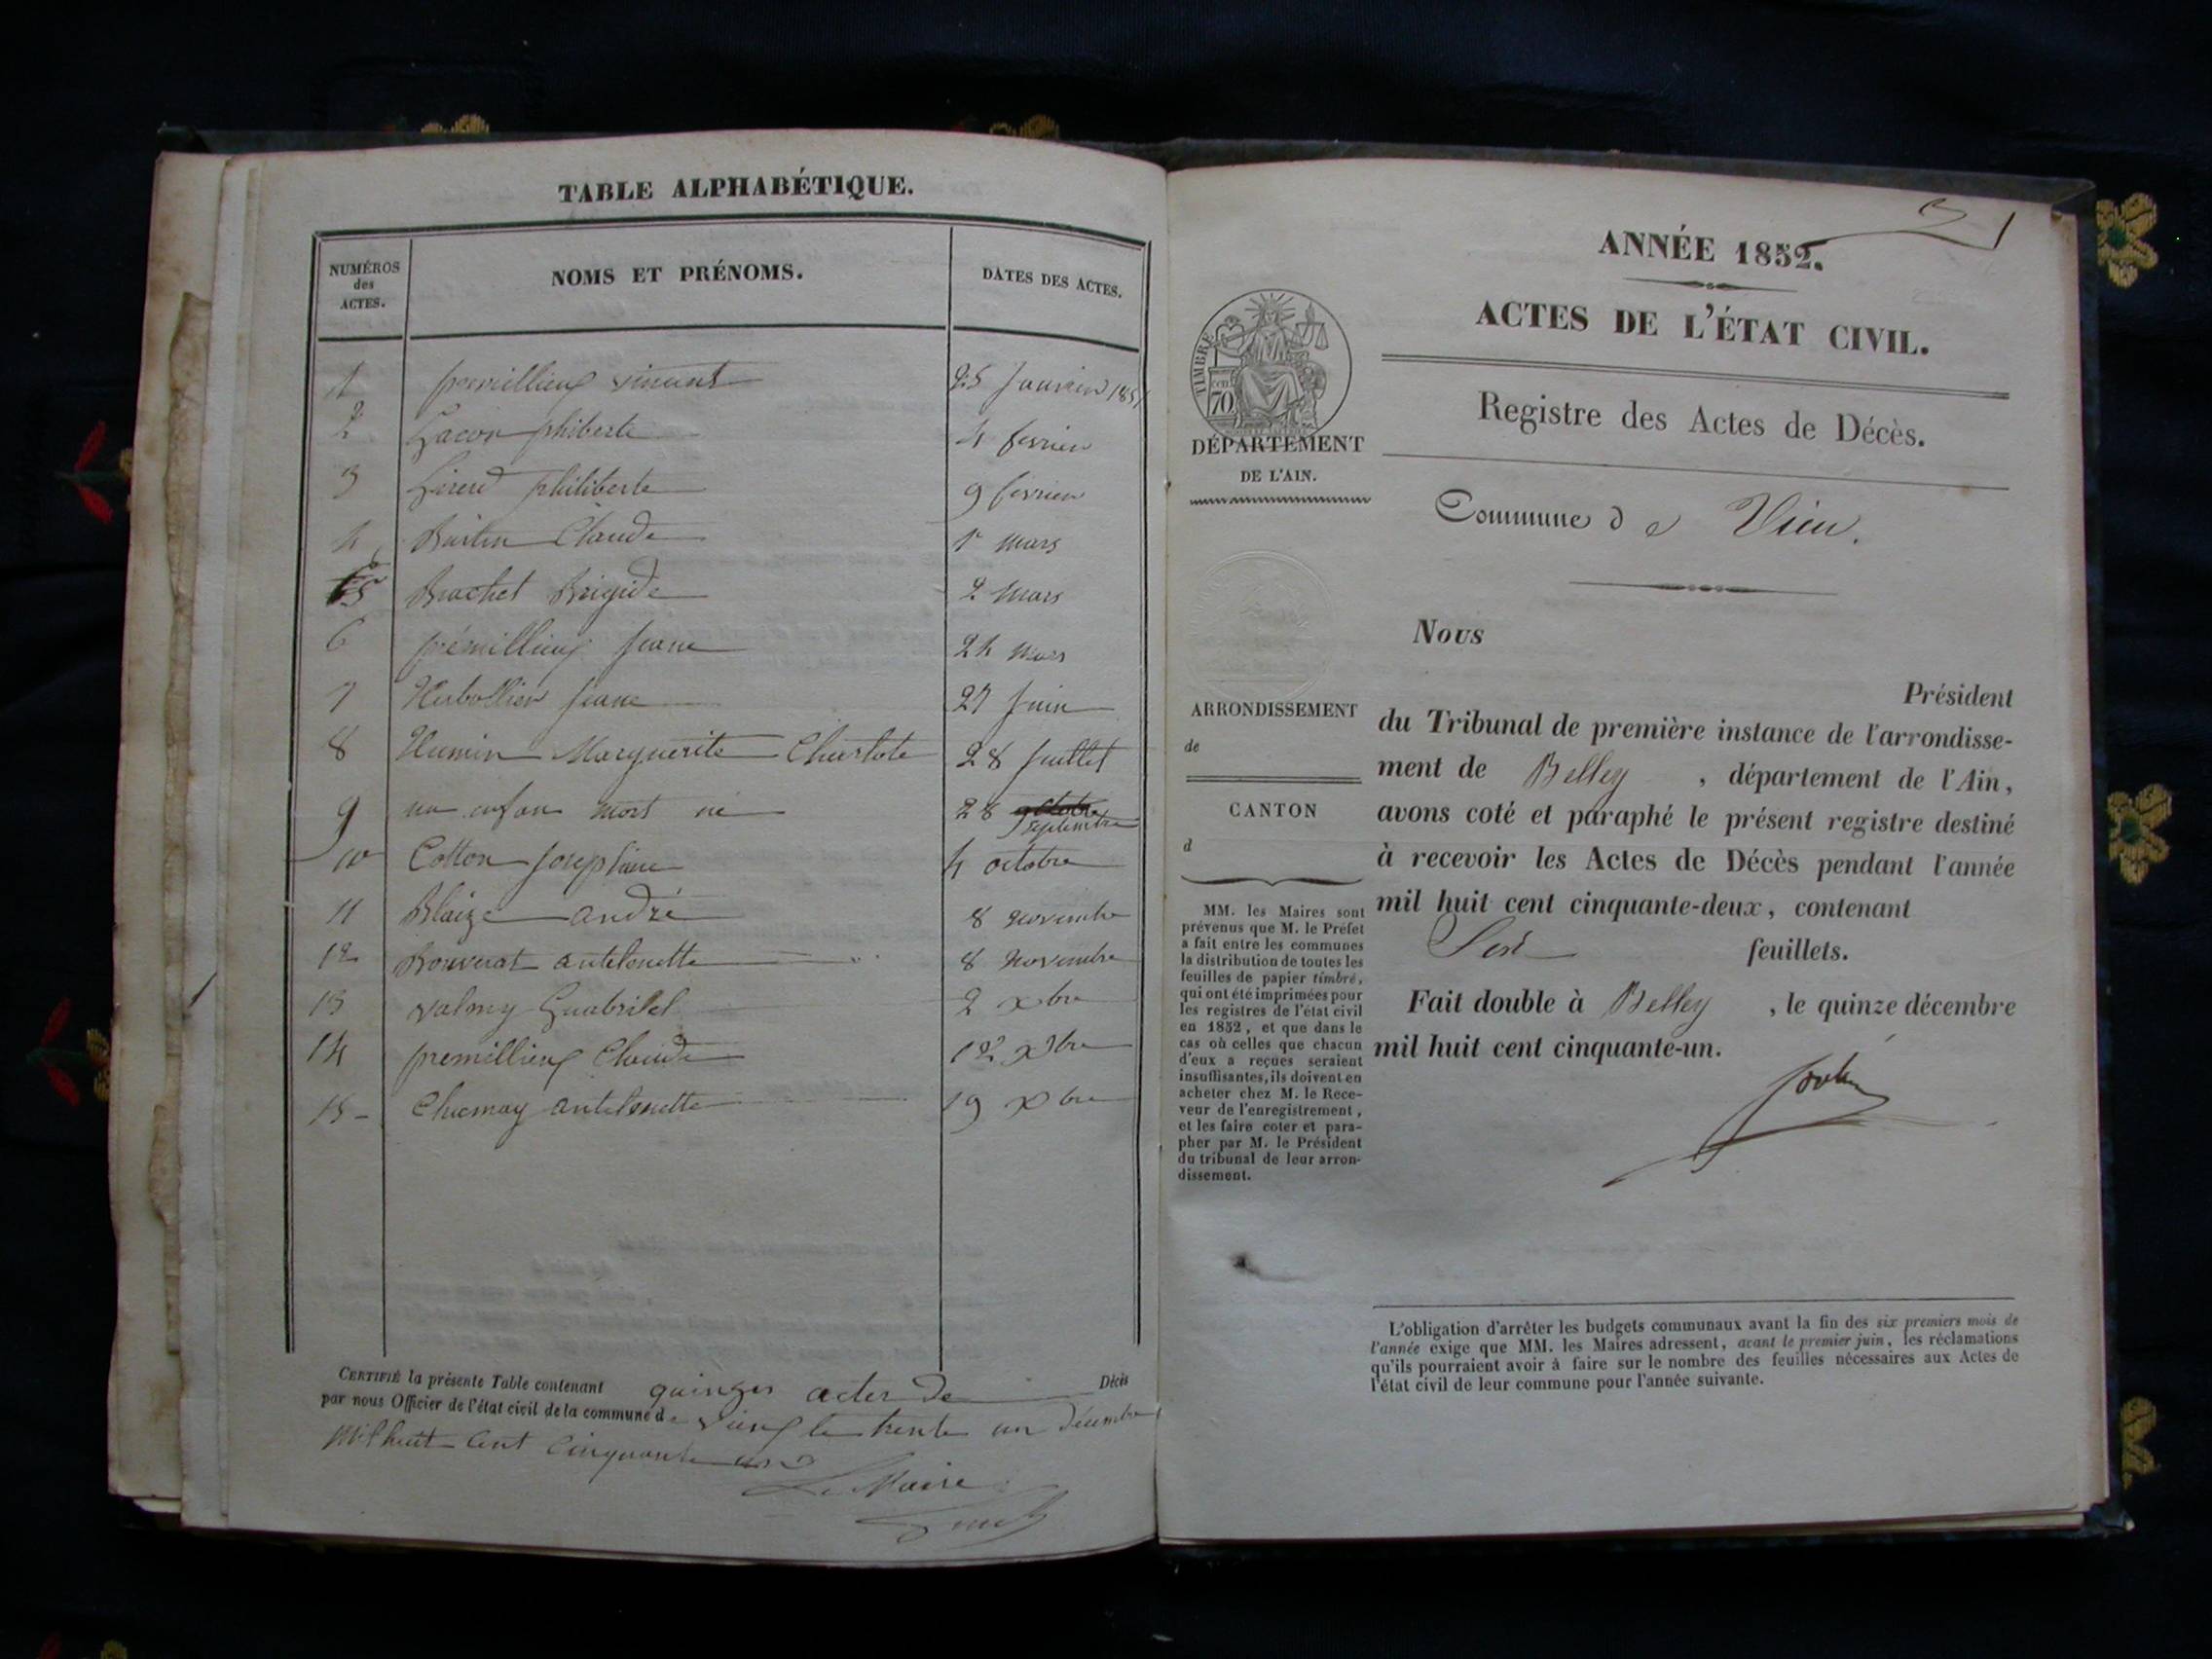 TABLE ALPHABÉTIQUE.
NUMÉROS des ACTES.
NOMS ET PRÉNOMS.
DATES DES ACTES.
1 premillieux vincent 25 Janvier 1851
2 philiberte 4 fevrier
3 philiberte 9 fevrier
4 Claude 1r Mars
5 Brachet Brigide 2 Mars
6 prémillieux jeane 24 Mars
7 jeane 27 Juin
8 Humin Marguerite Charlote 28 Juillet
9 un enfan mort né 28 octobre septembre
10 Cotton josephine 4 octobre
11 Blaize andré 8 novembre
12 Bouverat antelmette 8 novembre
13 valmy Guabriel 2 xbre
14 premillieux Claude 12 xbre
15 Chemay antelmette 19 xbre
CERTIFIÉ la présente Table contenant quinzes actes de Décès
par nous Officier de l'état civil de la commune de vieux le trente un décembre
mil huit cent cinquante un
Le Maire
ANNÉE 1852.
ACTES DE L'ÉTAT CIVIL.
Registre des Actes de Décès.
Commune de Vieu.
TIMBRE
70
DÉPARTEMENT
DE L'AIN.
ARRONDISSEMENT
de
CANTON
d
MM. les Maires sont
prévenus que M. le Préfet
a fait entre les communes
la distribution de toutes les
feuilles de papier timbré,
qui ont été imprimées pour
les registres de l'état civil
en 1852, et que dans le
cas où celles que chacun
d'eux a reçues seraient
insuffisantes, ils doivent en
acheter chez M. le Rece-
veur de l'enregistrement,
et les faire coter et para-
pher par M. le Président
du tribunal de leur arron-
dissement.
Nous
Président
du Tribunal de première instance de l'arrondisse-
ment de Belley, département de l'Ain,
avons coté et paraphé le présent registre destiné
à recevoir les Actes de Décès pendant l'année
mil huit cent cinquante-deux, contenant
feuillets.
Fait double à Belley, le quinze décembre
mil huit cent cinquante-un.
L'obligation d'arrêter les budgets communaux avant la fin des six premiers mois de
l'année exige que MM. les Maires adressent, avant le premier juin, les réclamations
qu'ils pourraient avoir à faire sur le nombre des feuilles nécessaires aux Actes de
l'état civil de leur commune pour l'année suivante.